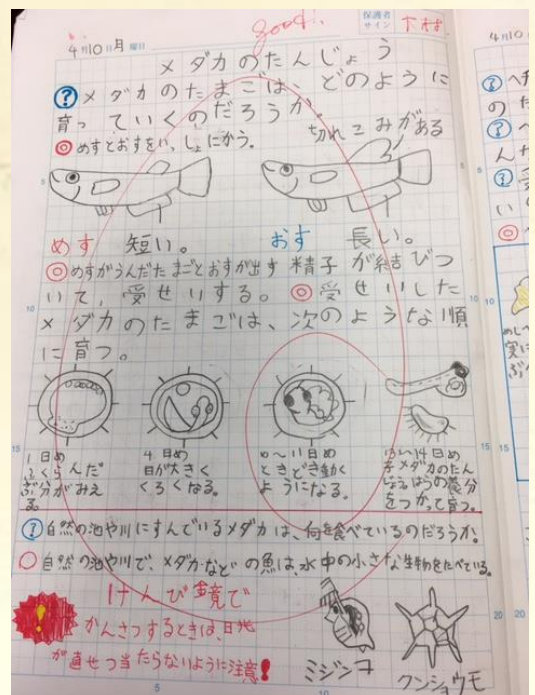 good!
保護者
サイン 下村
4月10日月曜日
メダカのたんじょう
? メダカのたまごは、どのように
育っていくのだろうか。
◎めすとおすをいっしょにかう。
切れこみがある
めす 短い。 おす 長い。
◎めすがうんだたまごとおすが出す精子が結びつ
いて、受せいする。 ◎受せいした
メダカのたまごは、次のような順
に育つ。
1日め
ふくらんだ
ぶ分がみえ
る。
4日め
目が大きく
くろくなる。
10〜11日め
ときどき動く
ようになる。
13〜14日め
子メダカのたん
はらの養分
をつかって育つ。
? 自然の池や川にすんでいるメダカは、何を食べているのだろうか。
○ 自然の池や川で、メダカなどの魚は、水中の小さな生物をたべている。
! けんび鏡で
かんさつするときは、日光
が直せつ当たらないように注意!
ミジンコ
クンショウモ
4月10